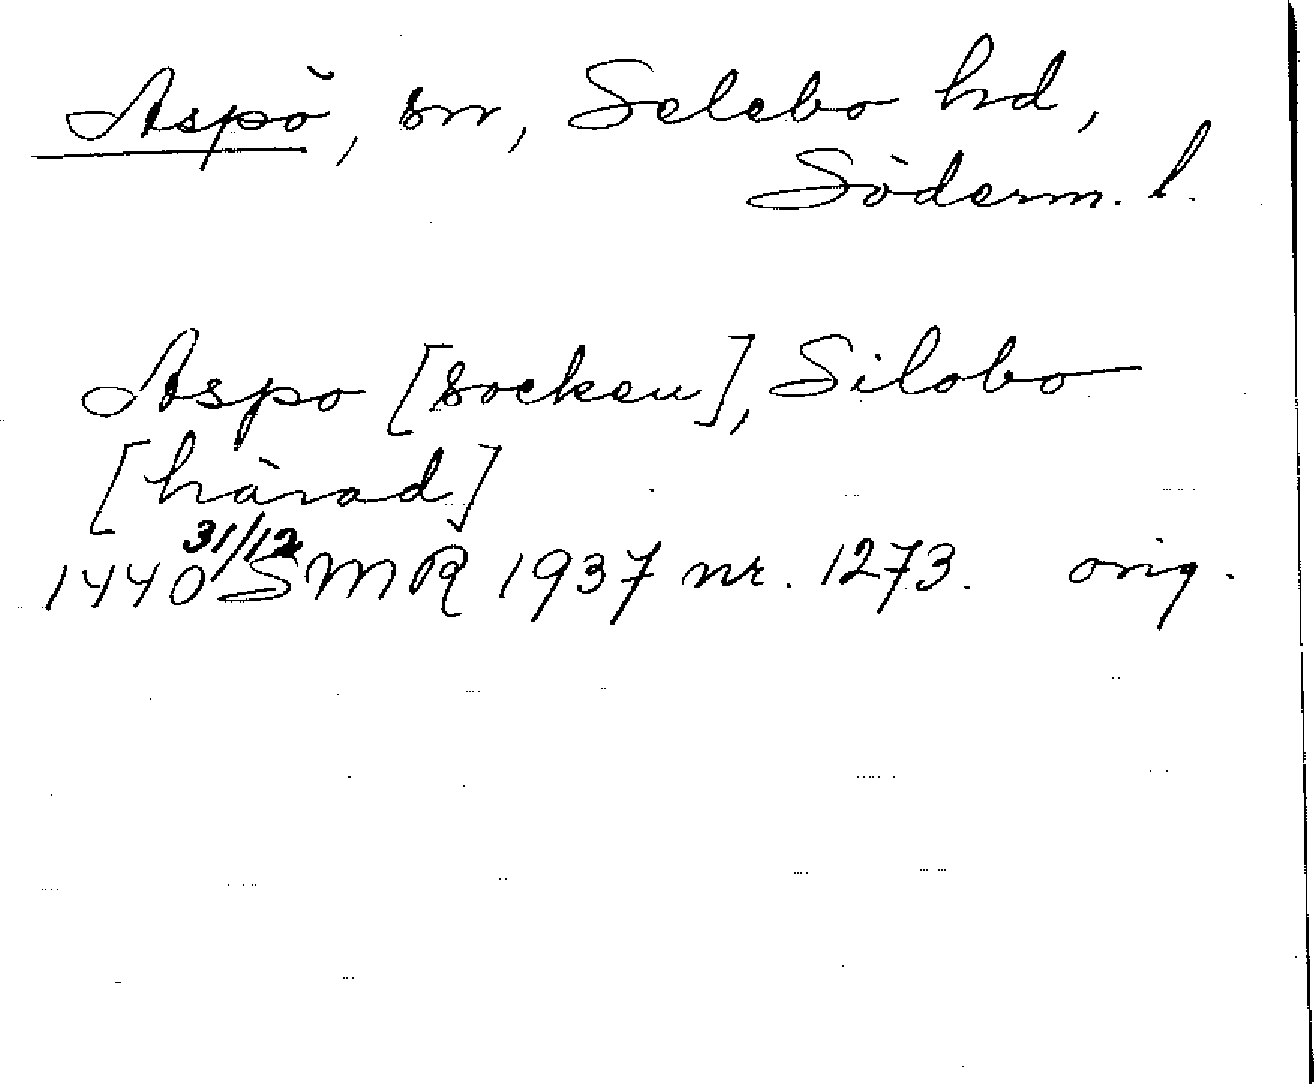 Aspö, sn, Selebo hd,
Söderm. l.
Aspo [socken], Silobo
[härad]
1440 31/12 SMR 1937 nr. 1273. orig.